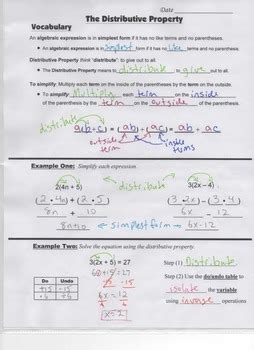 Date
The Distributive Property
Vocabulary
An algebraic expression is in simplest form if it has no like terms and no parentheses.
• An algebraic expression is in simplest form if it has no like terms and no parentheses.
Distributive Property think "distribute": to give out to all.
• The Distributive Property means to distribute to give out to all.
To simplify: Multiply each term on the inside of the parentheses by the term on the outside.
• To simplify: Multiply each term on the inside
of the parenthesis by the term on the outside of the parenthesis.
distribute
a(b+c) = (ab) + (ac) = ab + ac
outside term
inside terms
Example One: Simplify each expression.
2(4n + 5) distribute 3(2x - 4)
(2·4n) + (2·5) (3·2x) - (3·4)
8n + 10 6x - 12
8n+10 simplest form 6x-12
Example Two: Solve the equation using the distributive property.
3(2x + 5) = 27 Step (1) Distribute
6x+15=27 Step (2) Use the do/undo table to
Do Undo -15 -15 isolate the variable
6x = 12 using inverse operations
6 6
x=2